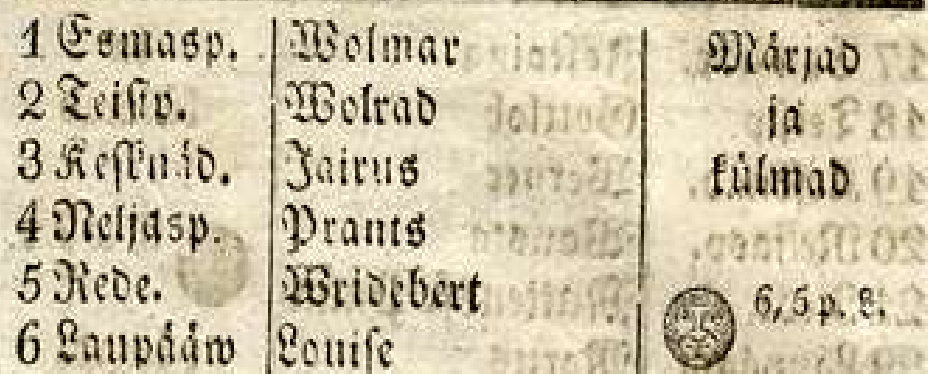 1 Esmasp. Wolmar Märjad
2 Teisip. Wolrad ja
3 Kesknäd. Jairus külmad
4 Neljasp. Prants
5 Rede. Wridebert 6, 5 p. E.
6 Laupääw Louise